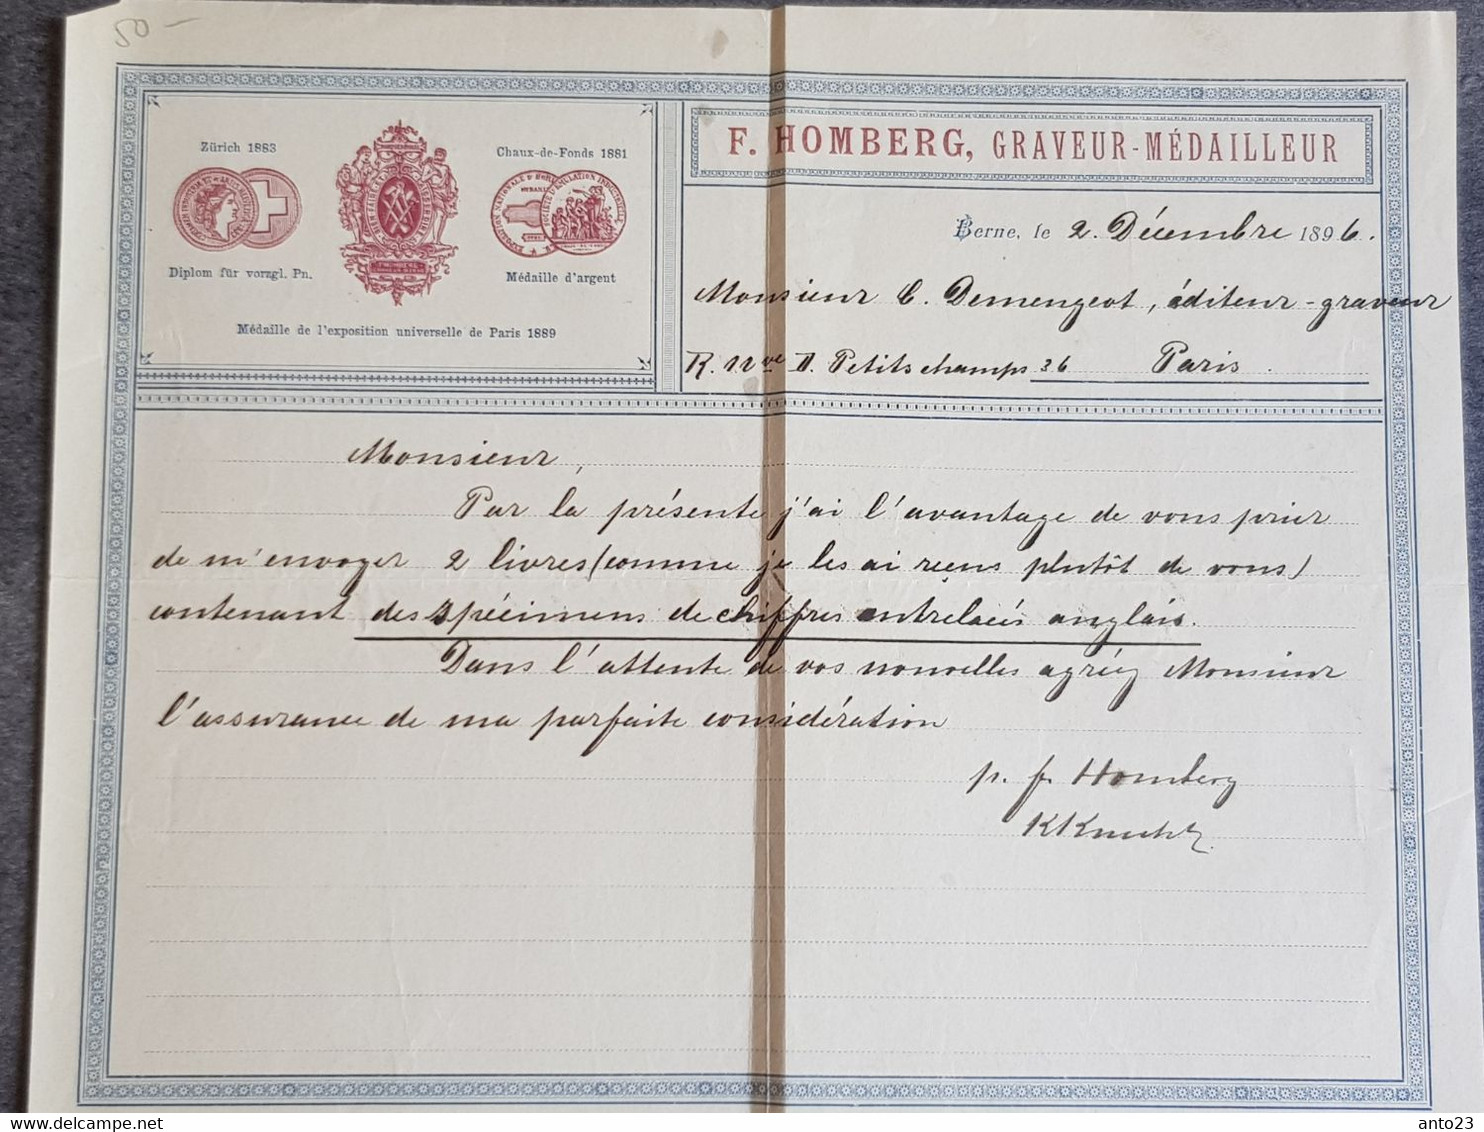 50 –
Zürich 1883
Diplom für vorzgl. Pn.
Chaux-de-Fonds 1881
Médaille d'argent
Médaille de l'exposition universelle de Paris 1889
F. HOMBERG, GRAVEUR-MÉDAILLEUR
Berne, le 2. Décembre 1896.
Monsieur C. Demengeot, éditeur-graveur
R. nve d. Petitschamps 36 Paris.
Monsieur,
Par la présente j'ai l'avantage de vous prier
de m'envoyer 2 livres (comme je les ai reçus plutôt de vous)
contenant des spécimens de chiffres entrelacés anglais.
Dans l'attente de vos nouvelles agréez Monsieur
l'assurance de ma parfaite considération
p. f. Homberg
anto23